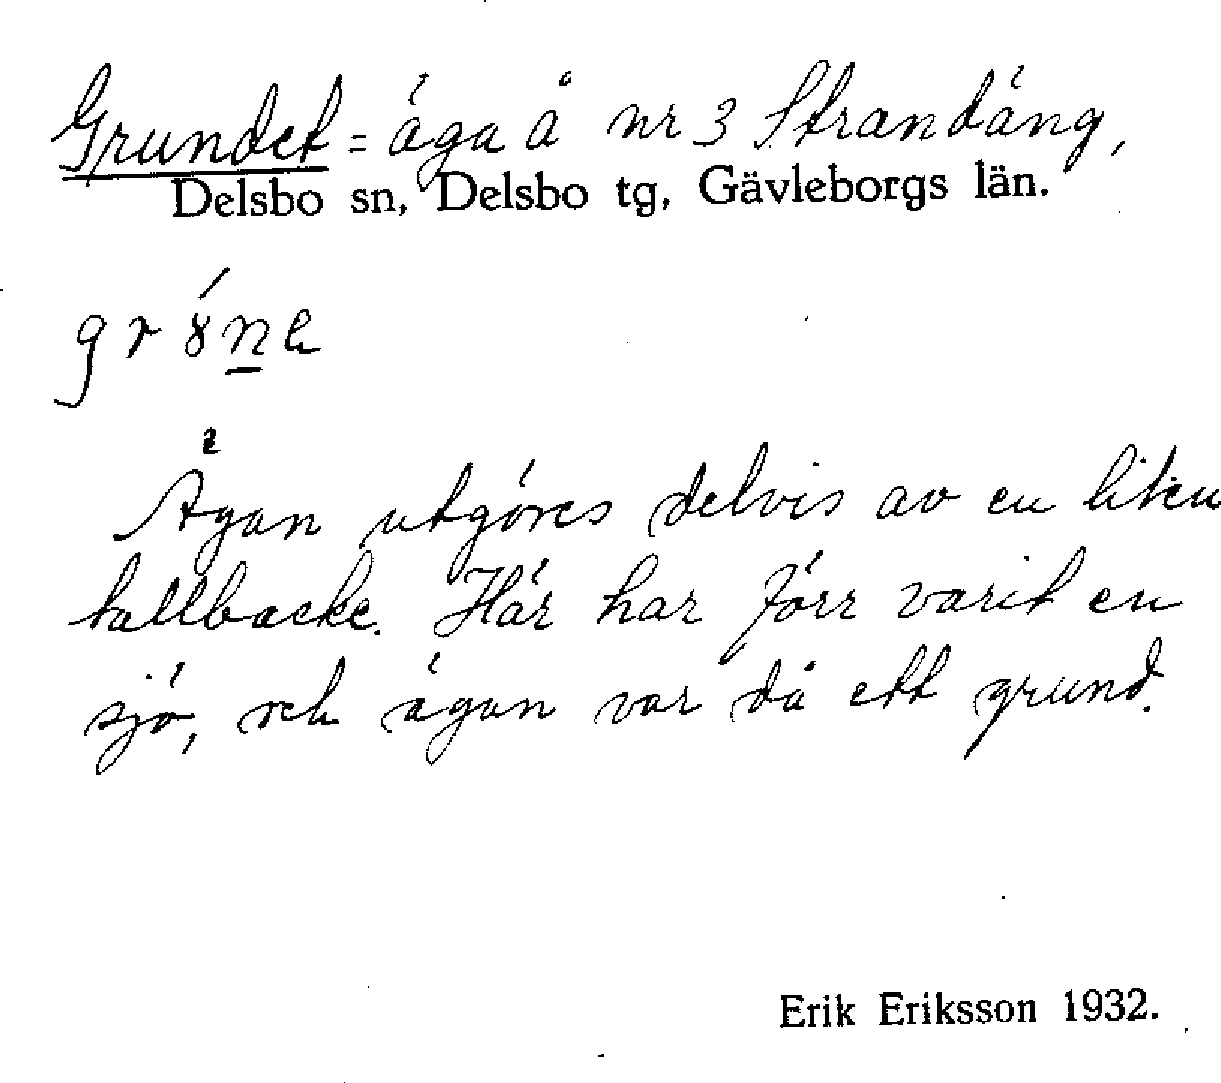 Grundet = äga å nr 3 Strandäng,
Delsbo sn, Delsbo tg, Gävleborgs län.
Ägan utgöres delvis av en liten
tallbacke. Här har förr varit en
sjö, och ägan var då ett grund.
Erik Eriksson 1932.